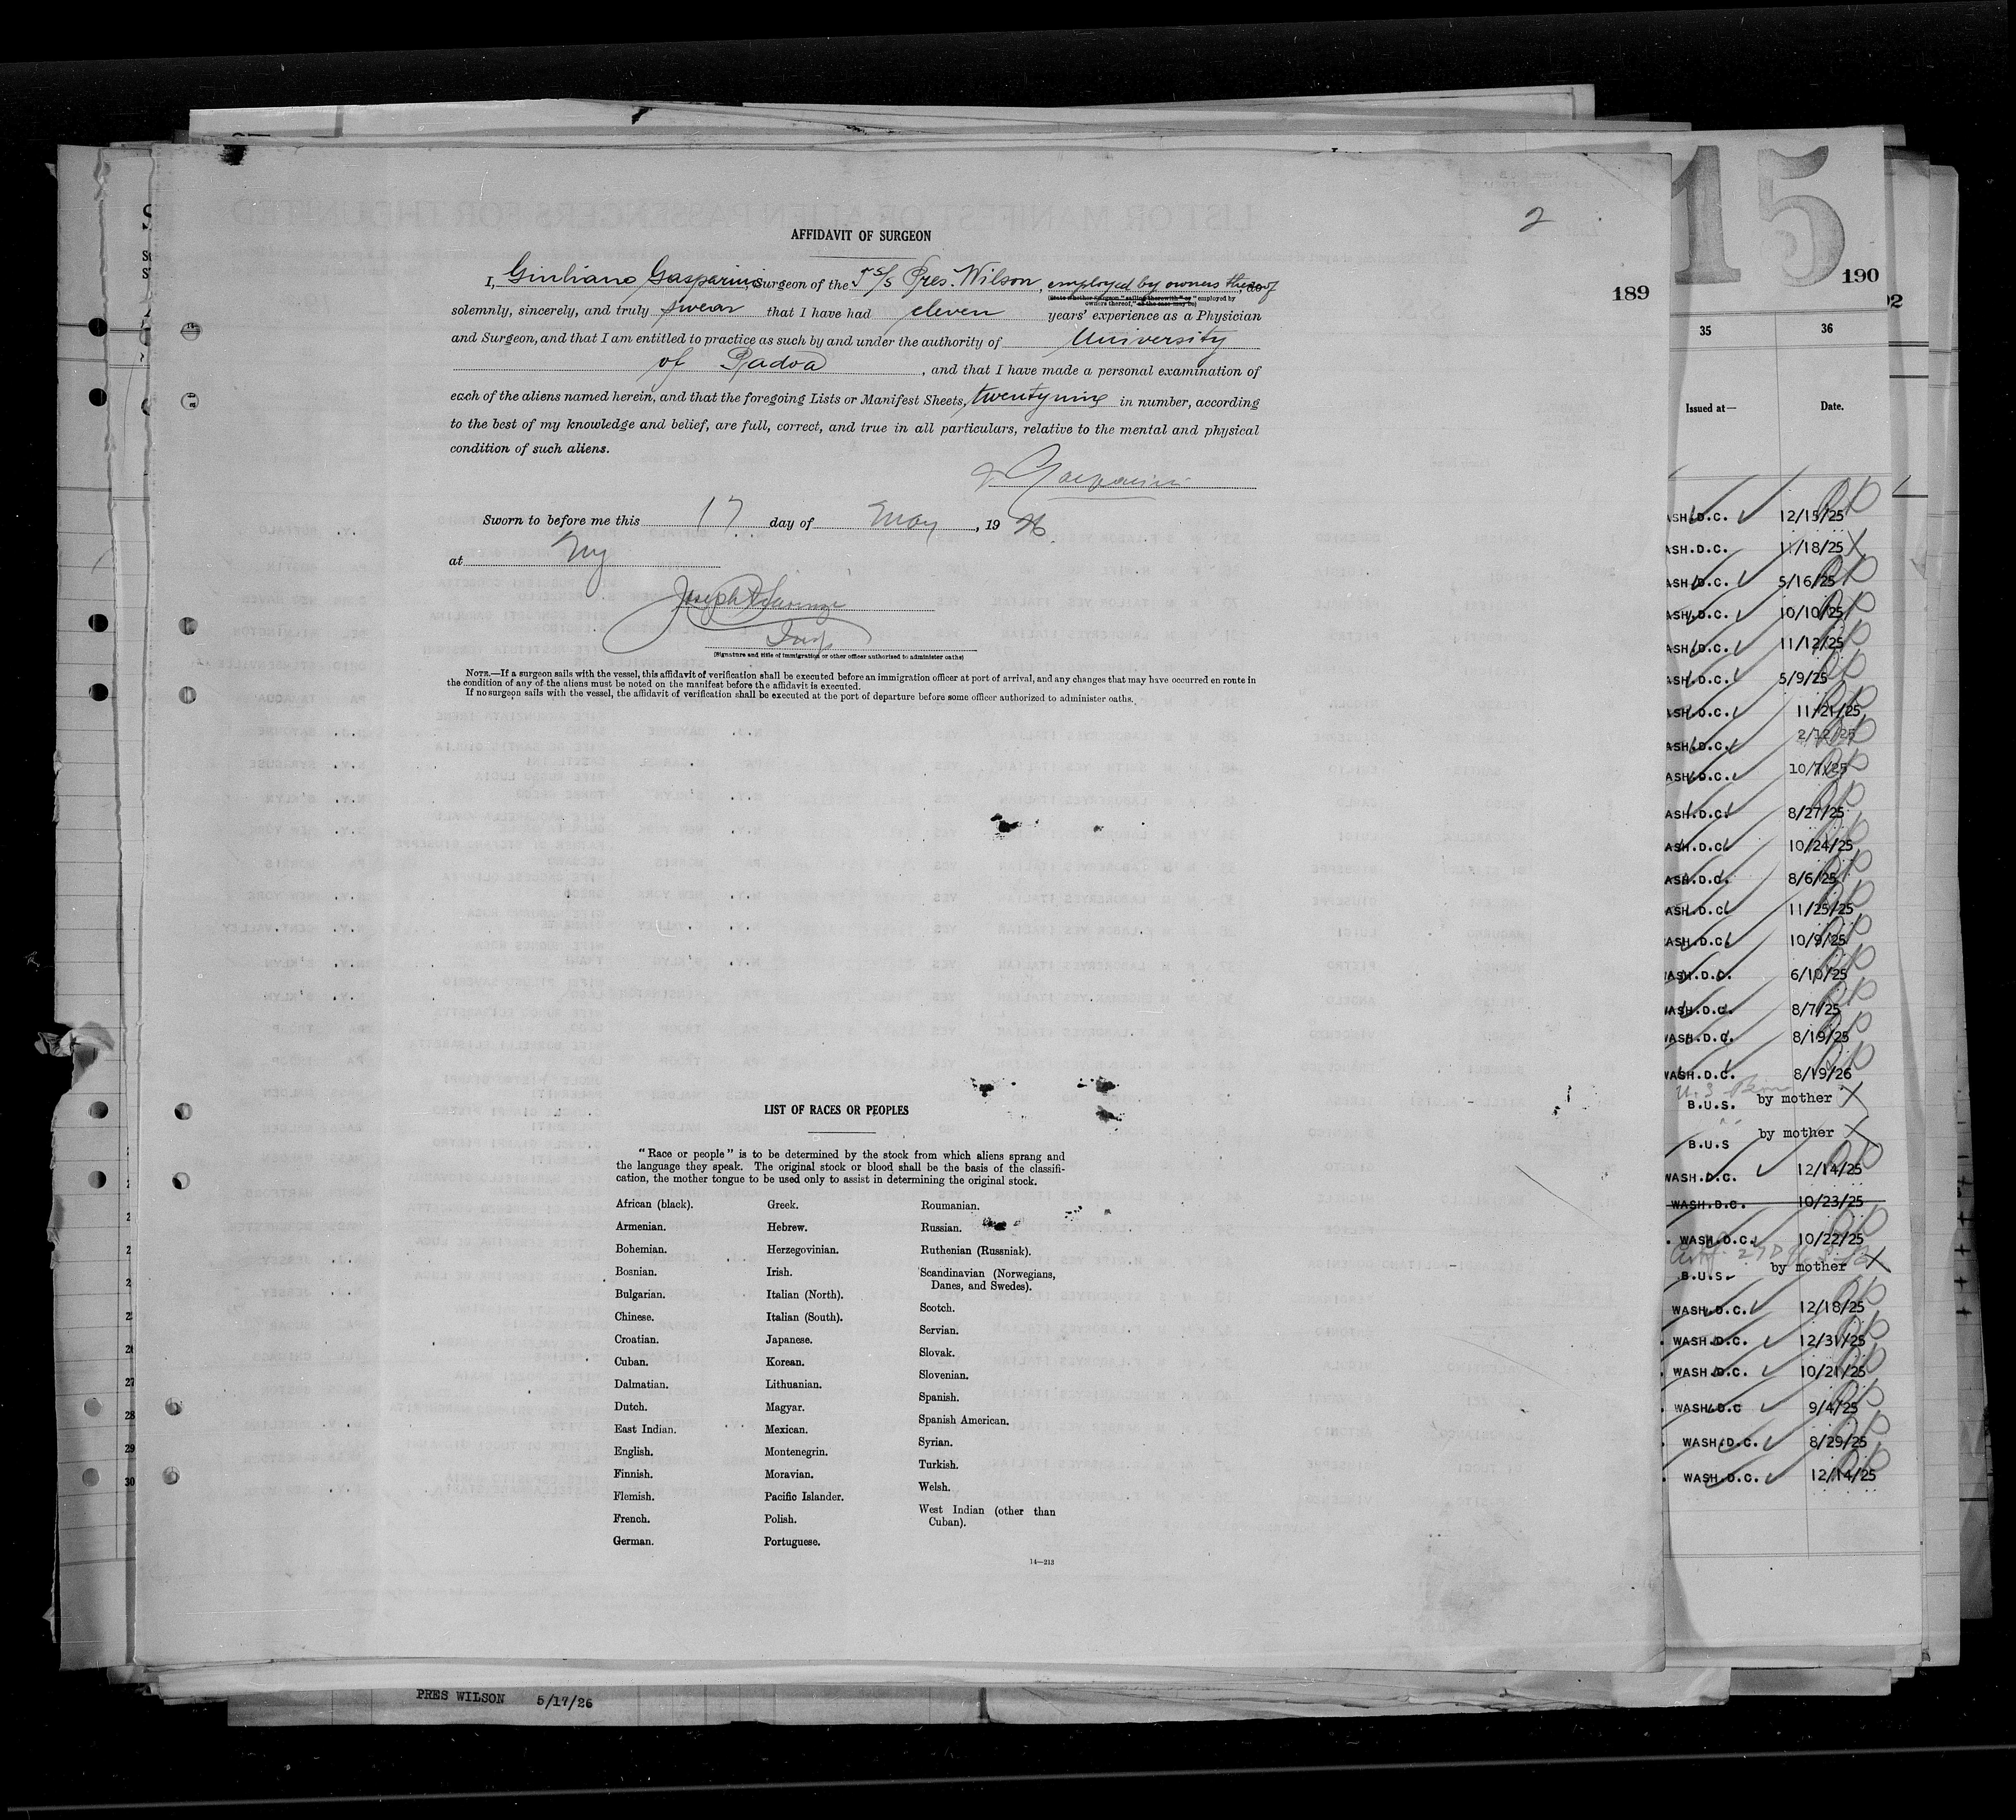 2
189
AFFIDAVIT OF SURGEON
I, Giuliano Gasparini, Surgeon of the T S/S Pres. Wilson, employed by owners thereof
(State whether Surgeon "sailing therewith" or "employed by
owners thereof," as the case may be)
solemnly, sincerely, and truly swear that I have had eleven years' experience as a Physician
and Surgeon, and that I am entitled to practice as such by and under the authority of University
of Padova, and that I have made a personal examination of
each of the aliens named herein, and that the foregoing Lists or Manifest Sheets, twentynine in number, according
to the best of my knowledge and belief, are full, correct, and true in all particulars, relative to the mental and physical
condition of such aliens.
Gasparini
Sworn to before me this 17 day of May, 19 26
at Ny
Joseph
Insp
(Signature and title of immigration or other officer authorized to administer oaths)
NOTE.—If a surgeon sails with the vessel, this affidavit of verification shall be executed before an immigration officer at port of arrival, and any changes that may have occurred en route in
the condition of any of the aliens must be noted on the manifest before the affidavit is executed.
If no surgeon sails with the vessel, the affidavit of verification shall be executed at the port of departure before some officer authorized to administer oaths.
LIST OF RACES OR PEOPLES
"Race or people" is to be determined by the stock from which aliens sprang and
the language they speak. The original stock or blood shall be the basis of the classifi-
cation, the mother tongue to be used only to assist in determining the original stock.
African (black).
Armenian.
Bohemian.
Bosnian.
Bulgarian.
Chinese.
Croatian.
Cuban.
Dalmatian.
Dutch.
East Indian.
English.
Finnish.
Flemish.
French.
German.
Greek.
Hebrew.
Herzegovinian.
Irish.
Italian (North).
Italian (South).
Japanese.
Korean.
Lithuanian.
Magyar.
Mexican.
Montenegrin.
Moravian.
Pacific Islander.
Polish.
Portuguese.
Roumanian.
Russian.
Ruthenian (Russniak).
Scandinavian (Norwegians,
Danes, and Swedes).
Scotch.
Servian.
Slovak.
Slovenian.
Spanish.
Spanish American.
Syrian.
Turkish.
Welsh.
West Indian (other than
Cuban).
14—213
15
190
92
35 36
Issued at— Date.
ASH.D.C. 12/15/25
ASH.D.C. 11/18/25
ASH.D.C. 5/16/25
ASH.D.C. 10/10/25
ASH.D.C. 11/12/25
ASH.D.C. 5/9/25
ASH.D.C. 11/21/25
ASH.D.C. 2/12/25
ASH.D.C. 10/7/25
ASH.D.C. 8/27/25
ASH.D.C. 10/24/25
ASH.D.C. 8/6/25
ASH.D.C. 11/25/25
ASH.D.C. 10/9/25
WASH.D.C. 6/10/25
WASH.D.C. 8/7/25
WASH.D.C. 8/19/25
WASH.D.C. 8/19/26
U.S. Born
B.U.S. by mother
B.U.S by mother
WASH.D.C. 12/14/25
WASH.D.C. 10/23/25
WASH.D.C. 10/22/25
B.U.S. by mother
WASH.D.C. 12/18/25
WASH.D.C. 12/31/25
WASH.D.C. 10/21/25
WASH.D.C 9/4/25
WASH.D.C. 8/29/25
WASH.D.C. 12/14/25
27
28
29
30
PRES WILSON 5/17/26